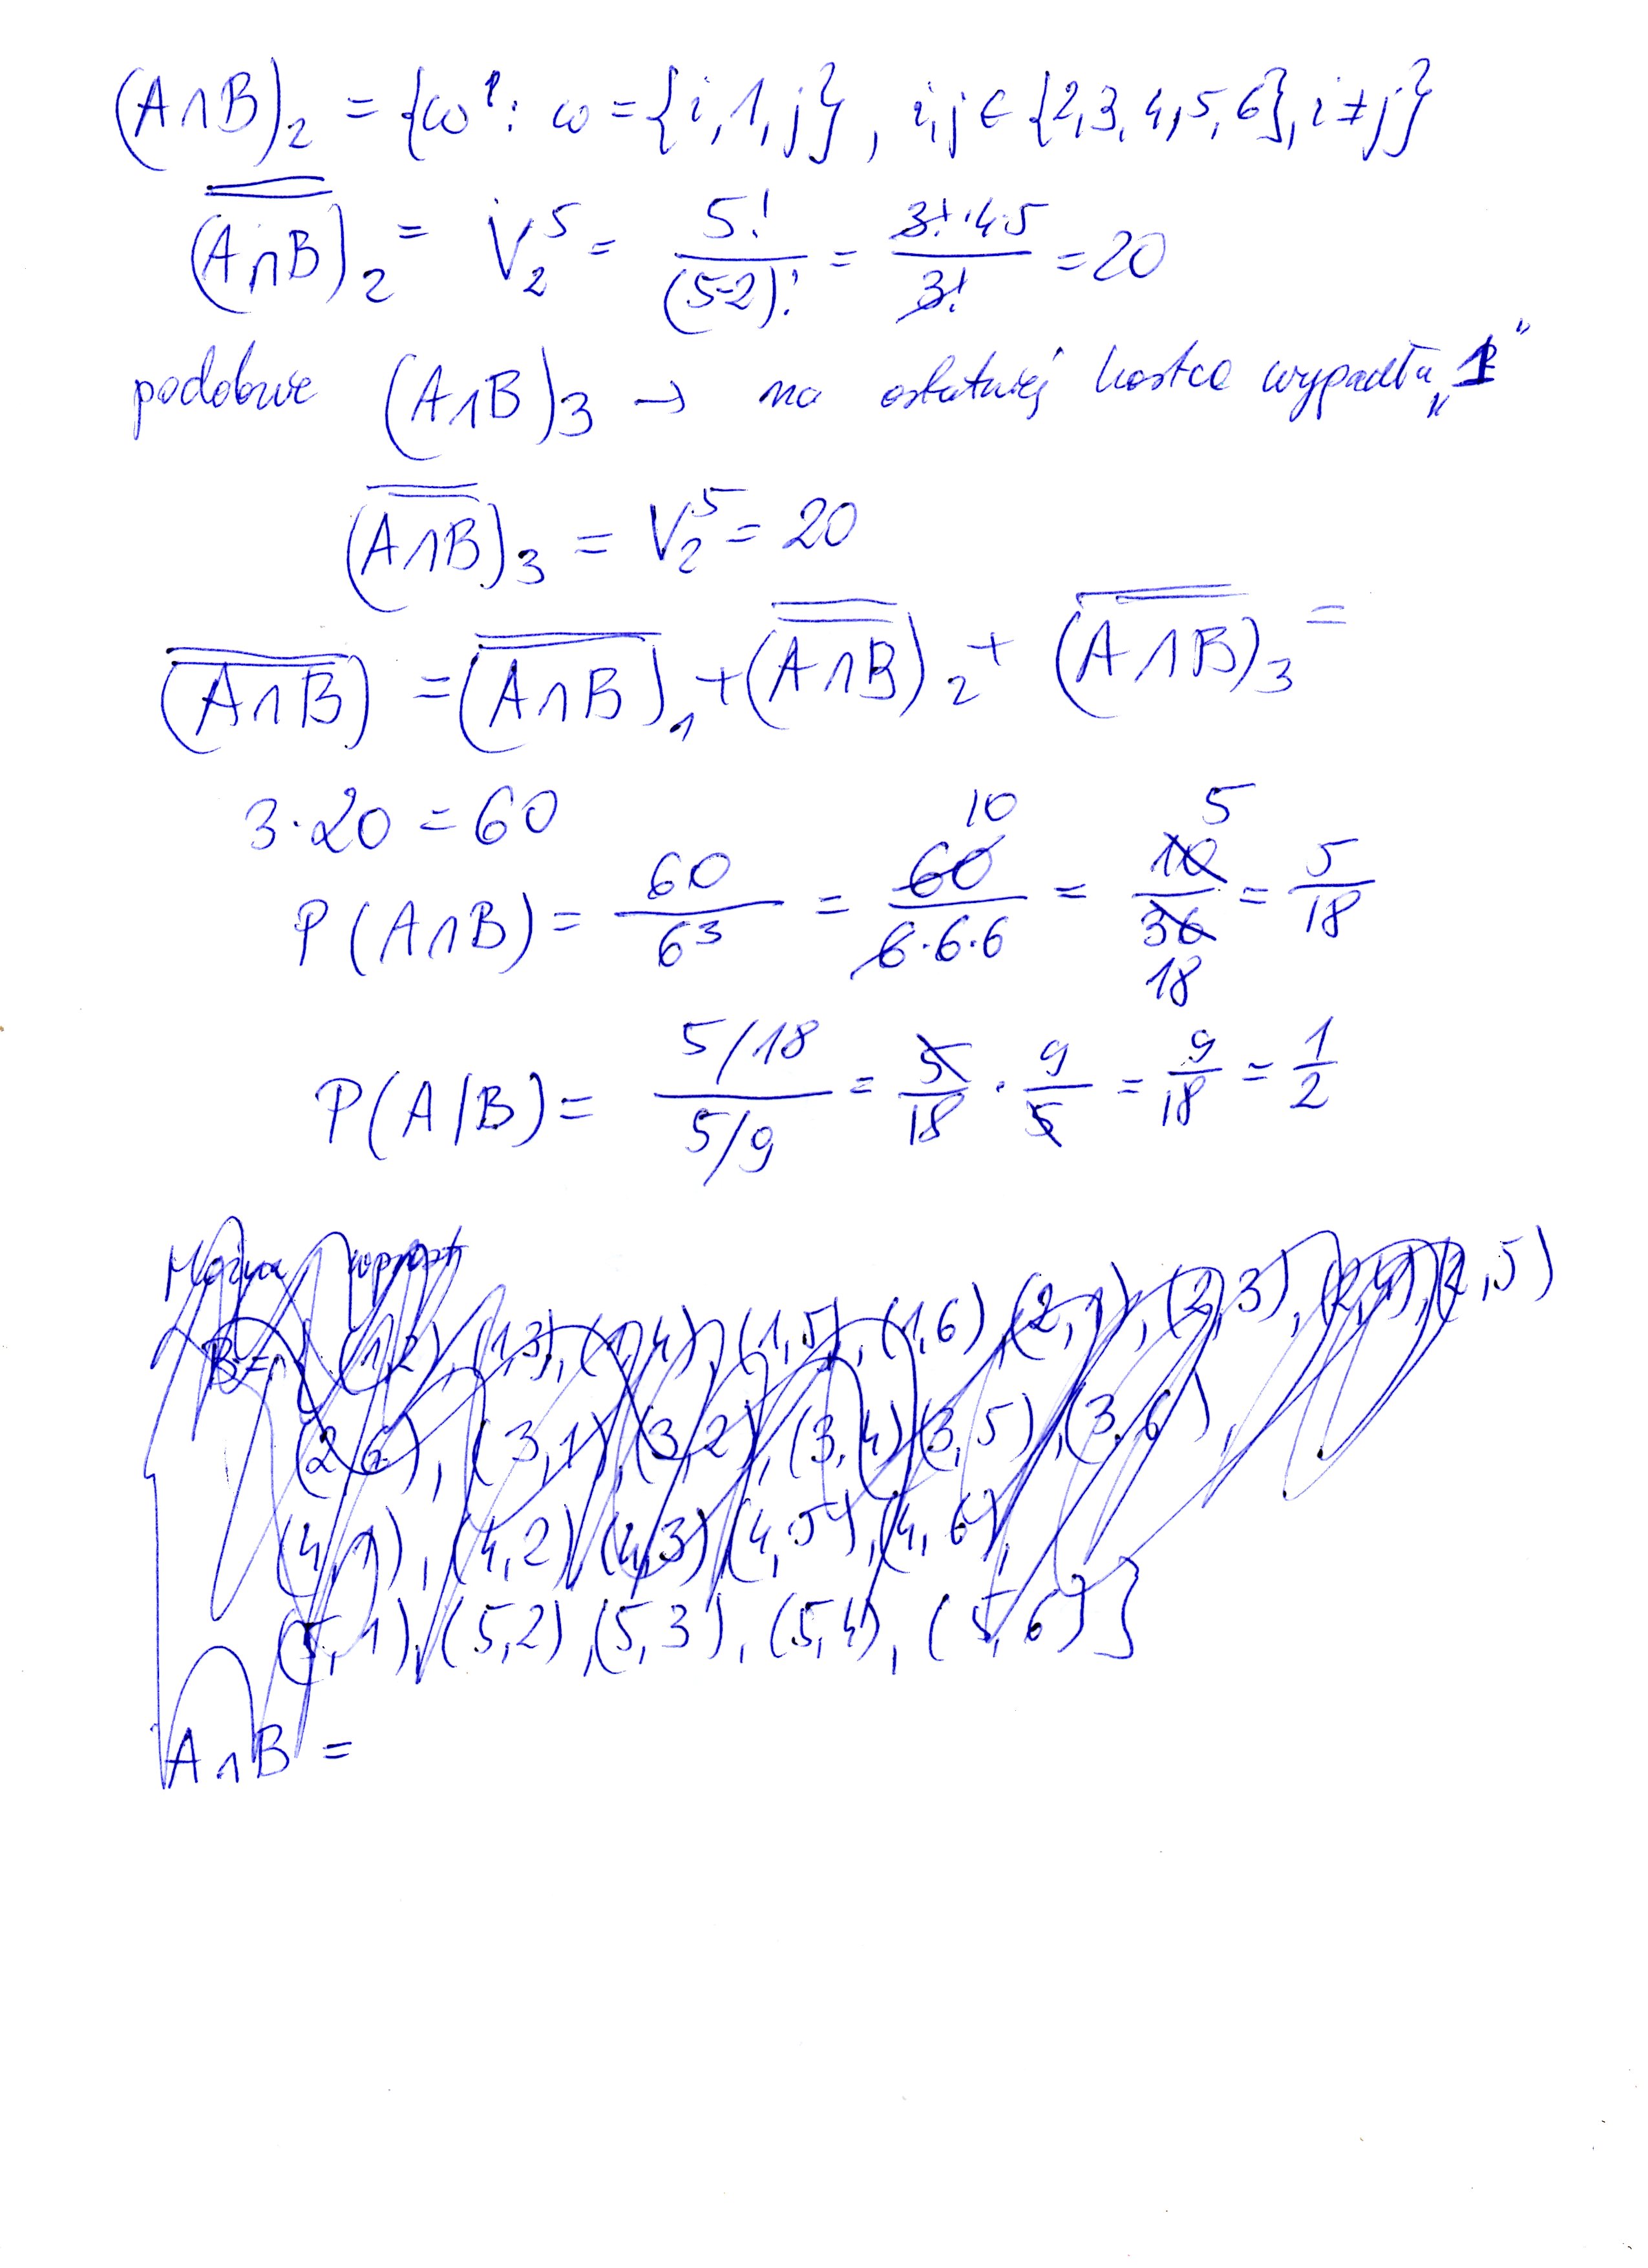 (A∩B)₂ = {ω: ω = {i, 1, j}, i, j ∈ {2, 3, 4, 5, 6}, i ≠ j}
(A∩B)₂ = V₂⁵ = 5! / (5-2)! = 3!·4·5 / 3! = 20
podobnie (A∩B)₃ → na ostatniej kostce wypadła „1”
(A∩B)₃ = V₂⁵ = 20
(A∩B) = (A∩B)₁ + (A∩B)₂ + (A∩B)₃ =
3·20 = 60
P(A∩B) = 60 / 6³ = 60 / 6·6·6 = 10 / 36 = 5 / 18
P(A/B) = 5/18 / 5/9 = 5/18 · 9/5 = 9/18 = 1/2
Można wprost
B = { (1,2), (1,3), (1,4), (1,5), (1,6), (2,1), (2,3), (2,4), (2,5)
(2,6), (3,1), (3,2), (3,4), (3,5), (3,6),
(4,1), (4,2), (4,3), (4,5), (4,6),
(5,1), (5,2), (5,3), (5,4), (5,6)}
A∩B =